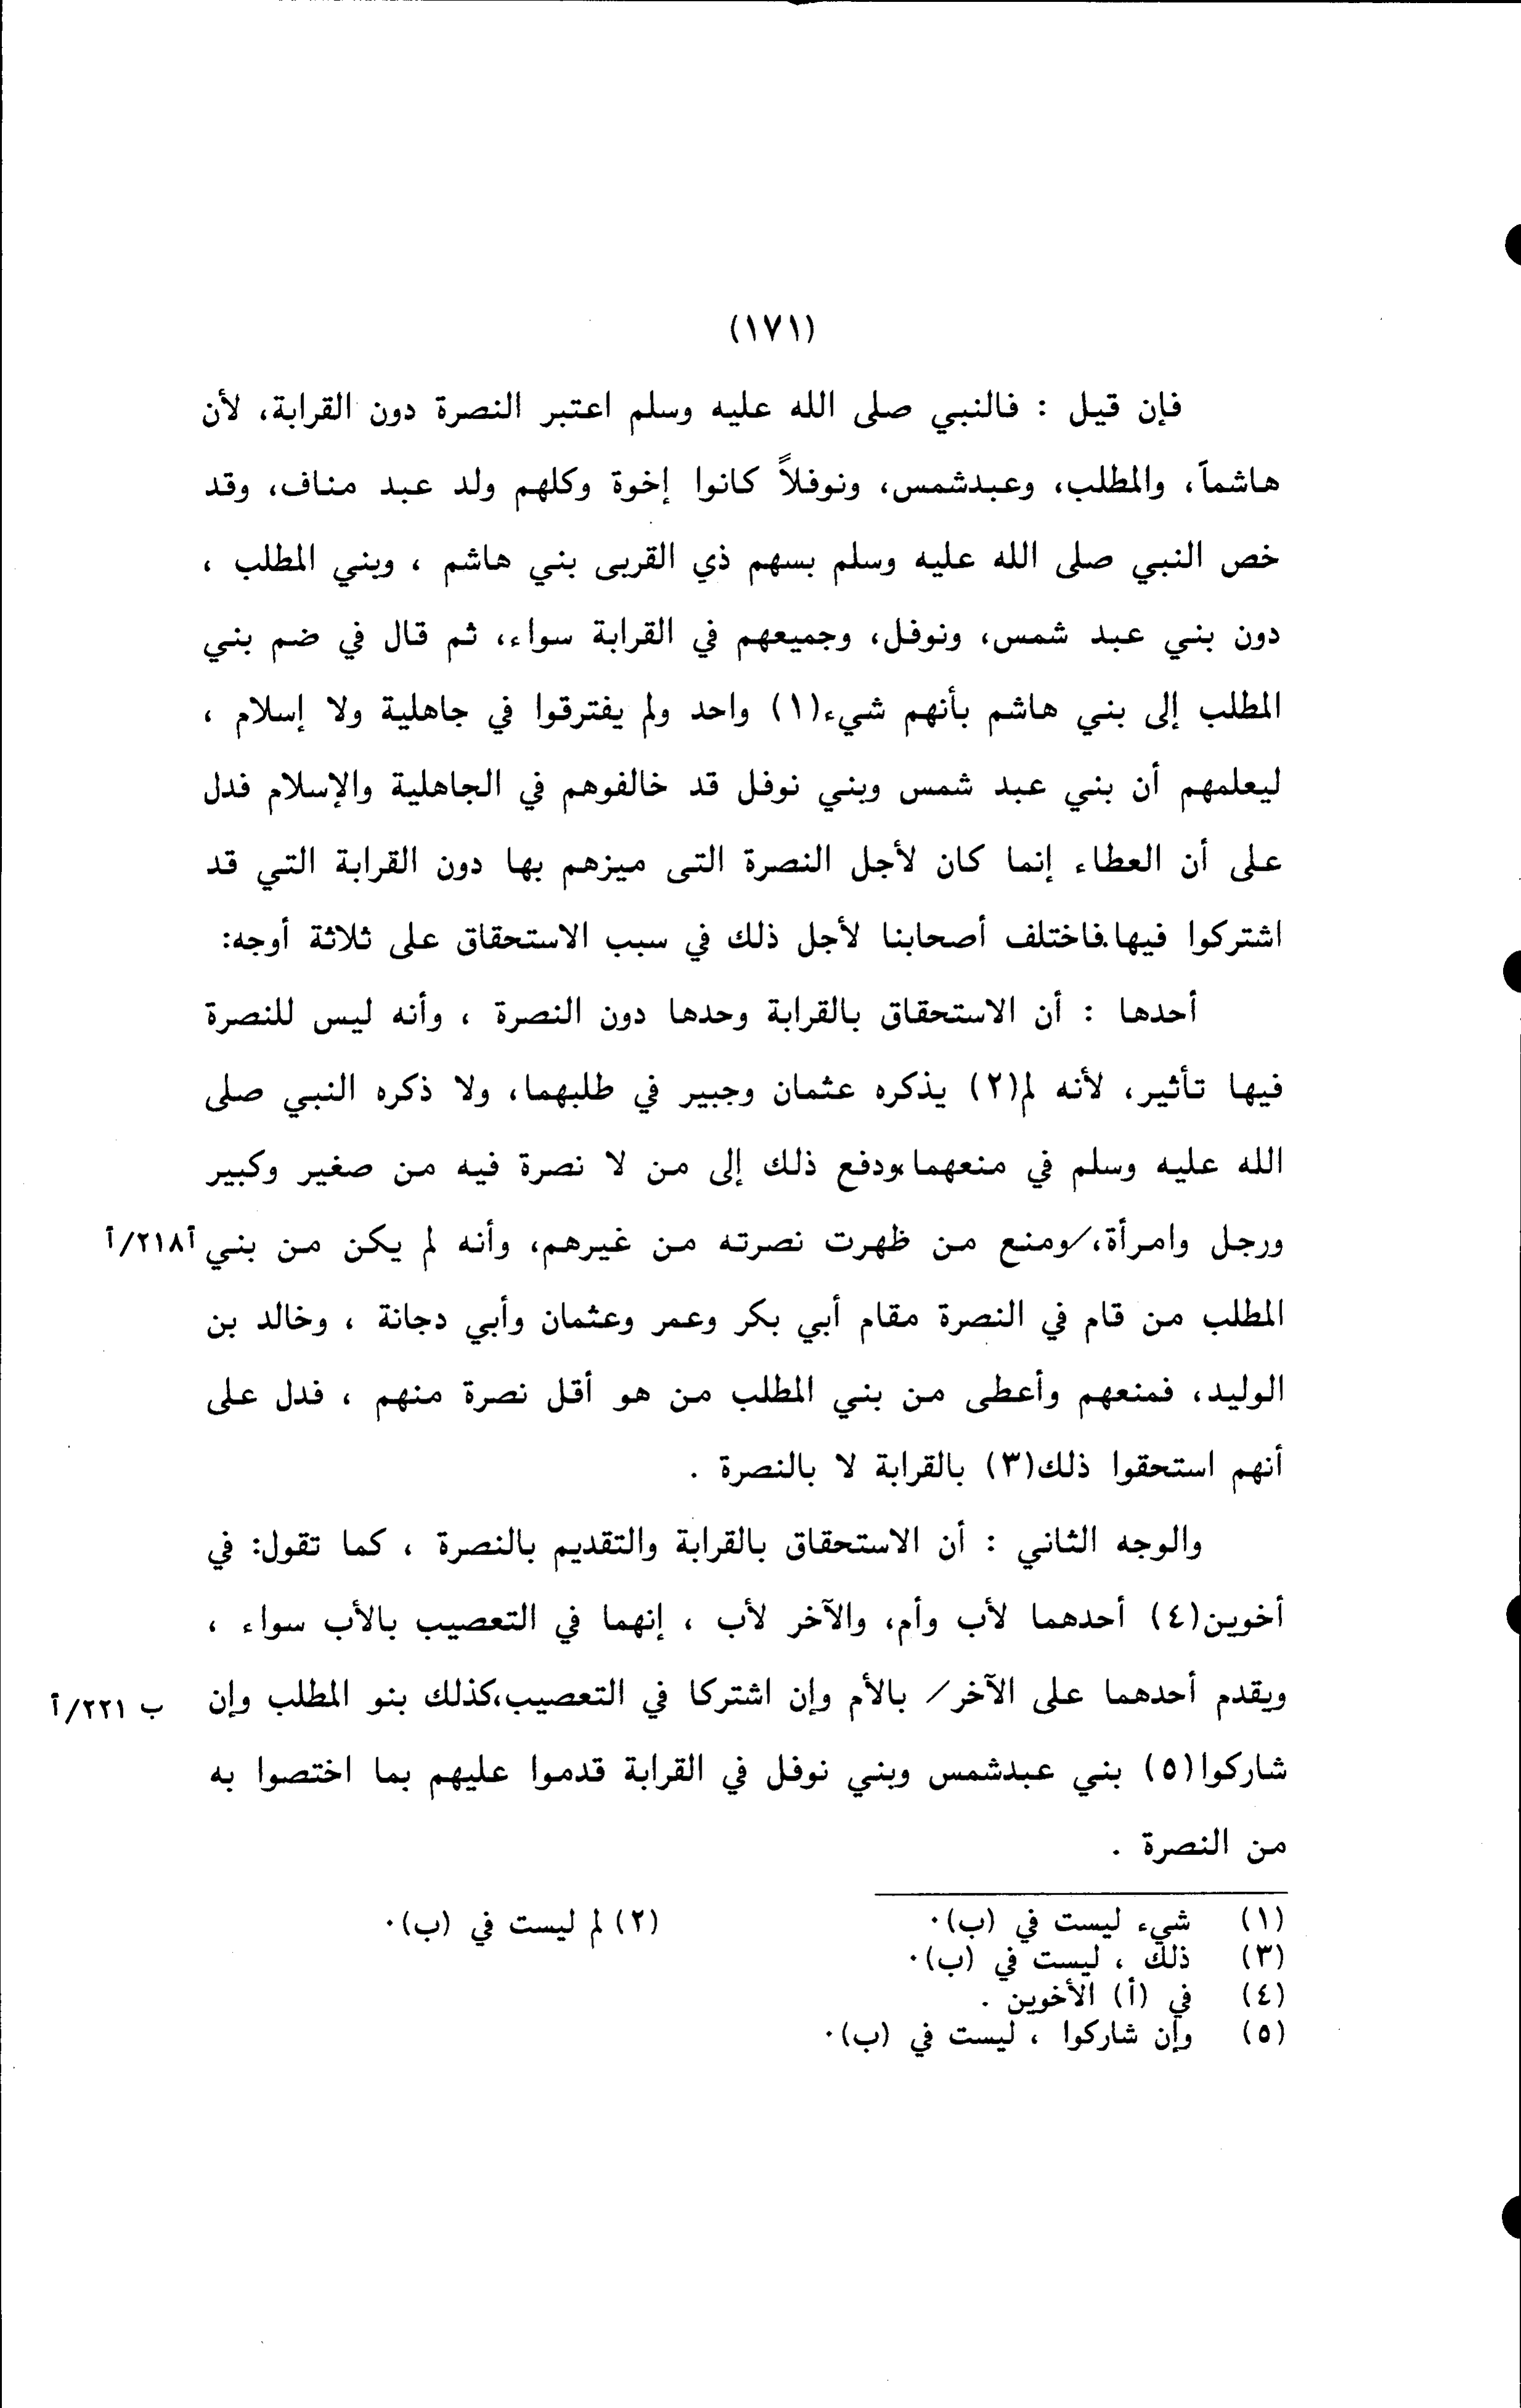 (١٧١)
فإن قيل : فالنبي صلى الله عليه وسلم اعتبر النصرة دون القرابة، لأن
هاشماً، والمطلب، وعبدشمس، ونوفلاً كانوا إخوة وكلهم ولد عبد مناف، وقد
خص النبي صلى الله عليه وسلم بسهم ذي القربى بني هاشم ، وبني المطلب ،
دون بني عبد شمس، ونوفل، وجميعهم في القرابة سواء، ثم قال في ضم بني
المطلب إلى بني هاشم بأنهم شيء(١) واحد ولم يفترقوا في جاهلية ولا إسلام ،
ليعلمهم أن بني عبد شمس وبني نوفل قد خالفوهم في الجاهلية والإسلام فدل
على أن العطاء إنما كان لأجل النصرة التى ميزهم بها دون القرابة التي قد
اشتركوا فيها.فاختلف أصحابنا لأجل ذلك في سبب الاستحقاق على ثلاثة أوجه:
أحدها : أن الاستحقاق بالقرابة وحدها دون النصرة ، وأنه ليس للنصرة
فيها تأثير، لأنه لم(٢) يذكره عثمان وجبير في طلبهما، ولا ذكره النبي صلى
الله عليه وسلم في منعهما،ودفع ذلك إلى من لا نصرة فيه من صغير وكبير
ورجل وامرأة،/ومنع من ظهرت نصرته من غيرهم، وأنه لم يكن من بني أ٢١٨/أ
المطلب من قام في النصرة مقام أبي بكر وعمر وعثمان وأبي دجانة ، وخالد بن
الوليد، فمنعهم وأعطى من بني المطلب من هو أقل نصرة منهم ، فدل على
أنهم استحقوا ذلك(٣) بالقرابة لا بالنصرة .
والوجه الثاني : أن الاستحقاق بالقرابة والتقديم بالنصرة ، كما تقول: في
أخوين(٤) أحدهما لأب وأم، والآخر لأب ، إنهما في التعصيب بالأب سواء ،
ويقدم أحدهما على الآخر/ بالأم وإن اشتركا في التعصيب،كذلك بنو المطلب وإن ب ٢٢١/أ
شاركوا(٥) بني عبدشمس وبني نوفل في القرابة قدموا عليهم بما اختصوا به
من النصرة .
(١) شيء ليست في (ب). (٢) لم ليست في (ب).
(٣) ذلك ، ليست في (ب).
(٤) في (أ) الأخوين .
(٥) وإن شاركوا ، ليست في (ب).